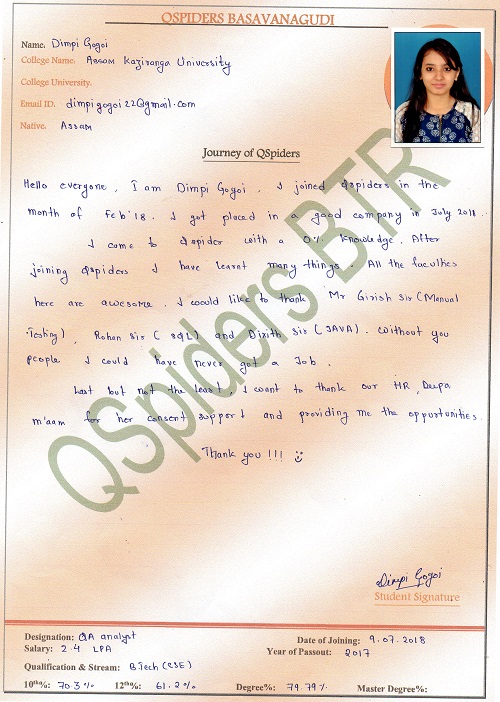 QSPIDERS BASAVANAGUDI
Name. Dimpi Gogoi
College Name. Assam Kaziranga University
College University.
Email ID. dimpigogoi22@gmail.com
Native. Assam
Journey of QSpiders
Hello everyone, I am Dimpi Gogoi. I joined Qspiders in the
month of Feb'18. I got placed in a good company in July 2018.
I came to Qspider with a 0% knowledge. After
joining Qspiders I have learnt many things. All the faculties
here are awesome. I would like to thank Mr Girish Sir (Manual
Testing), Rohan Sir (SQL) and Dixith Sir (JAVA). Without you
people I could have never got a Job.
Last but not the least, I want to thank our HR, Deepa
m'aam for her consent support and providing me the oppurtunities.
Thank you !!!
QSpiders BTR
Dimpi Gogoi
Student Signature
Designation: QA analyst Date of Joining: 9.07.2018
Salary: 2.4 LPA Year of Passout: 2017
Qualification & Stream: BTech (CSE)
10th%: 70.3% 12th%: 61.2% Degree%: 79.79% Master Degree%: